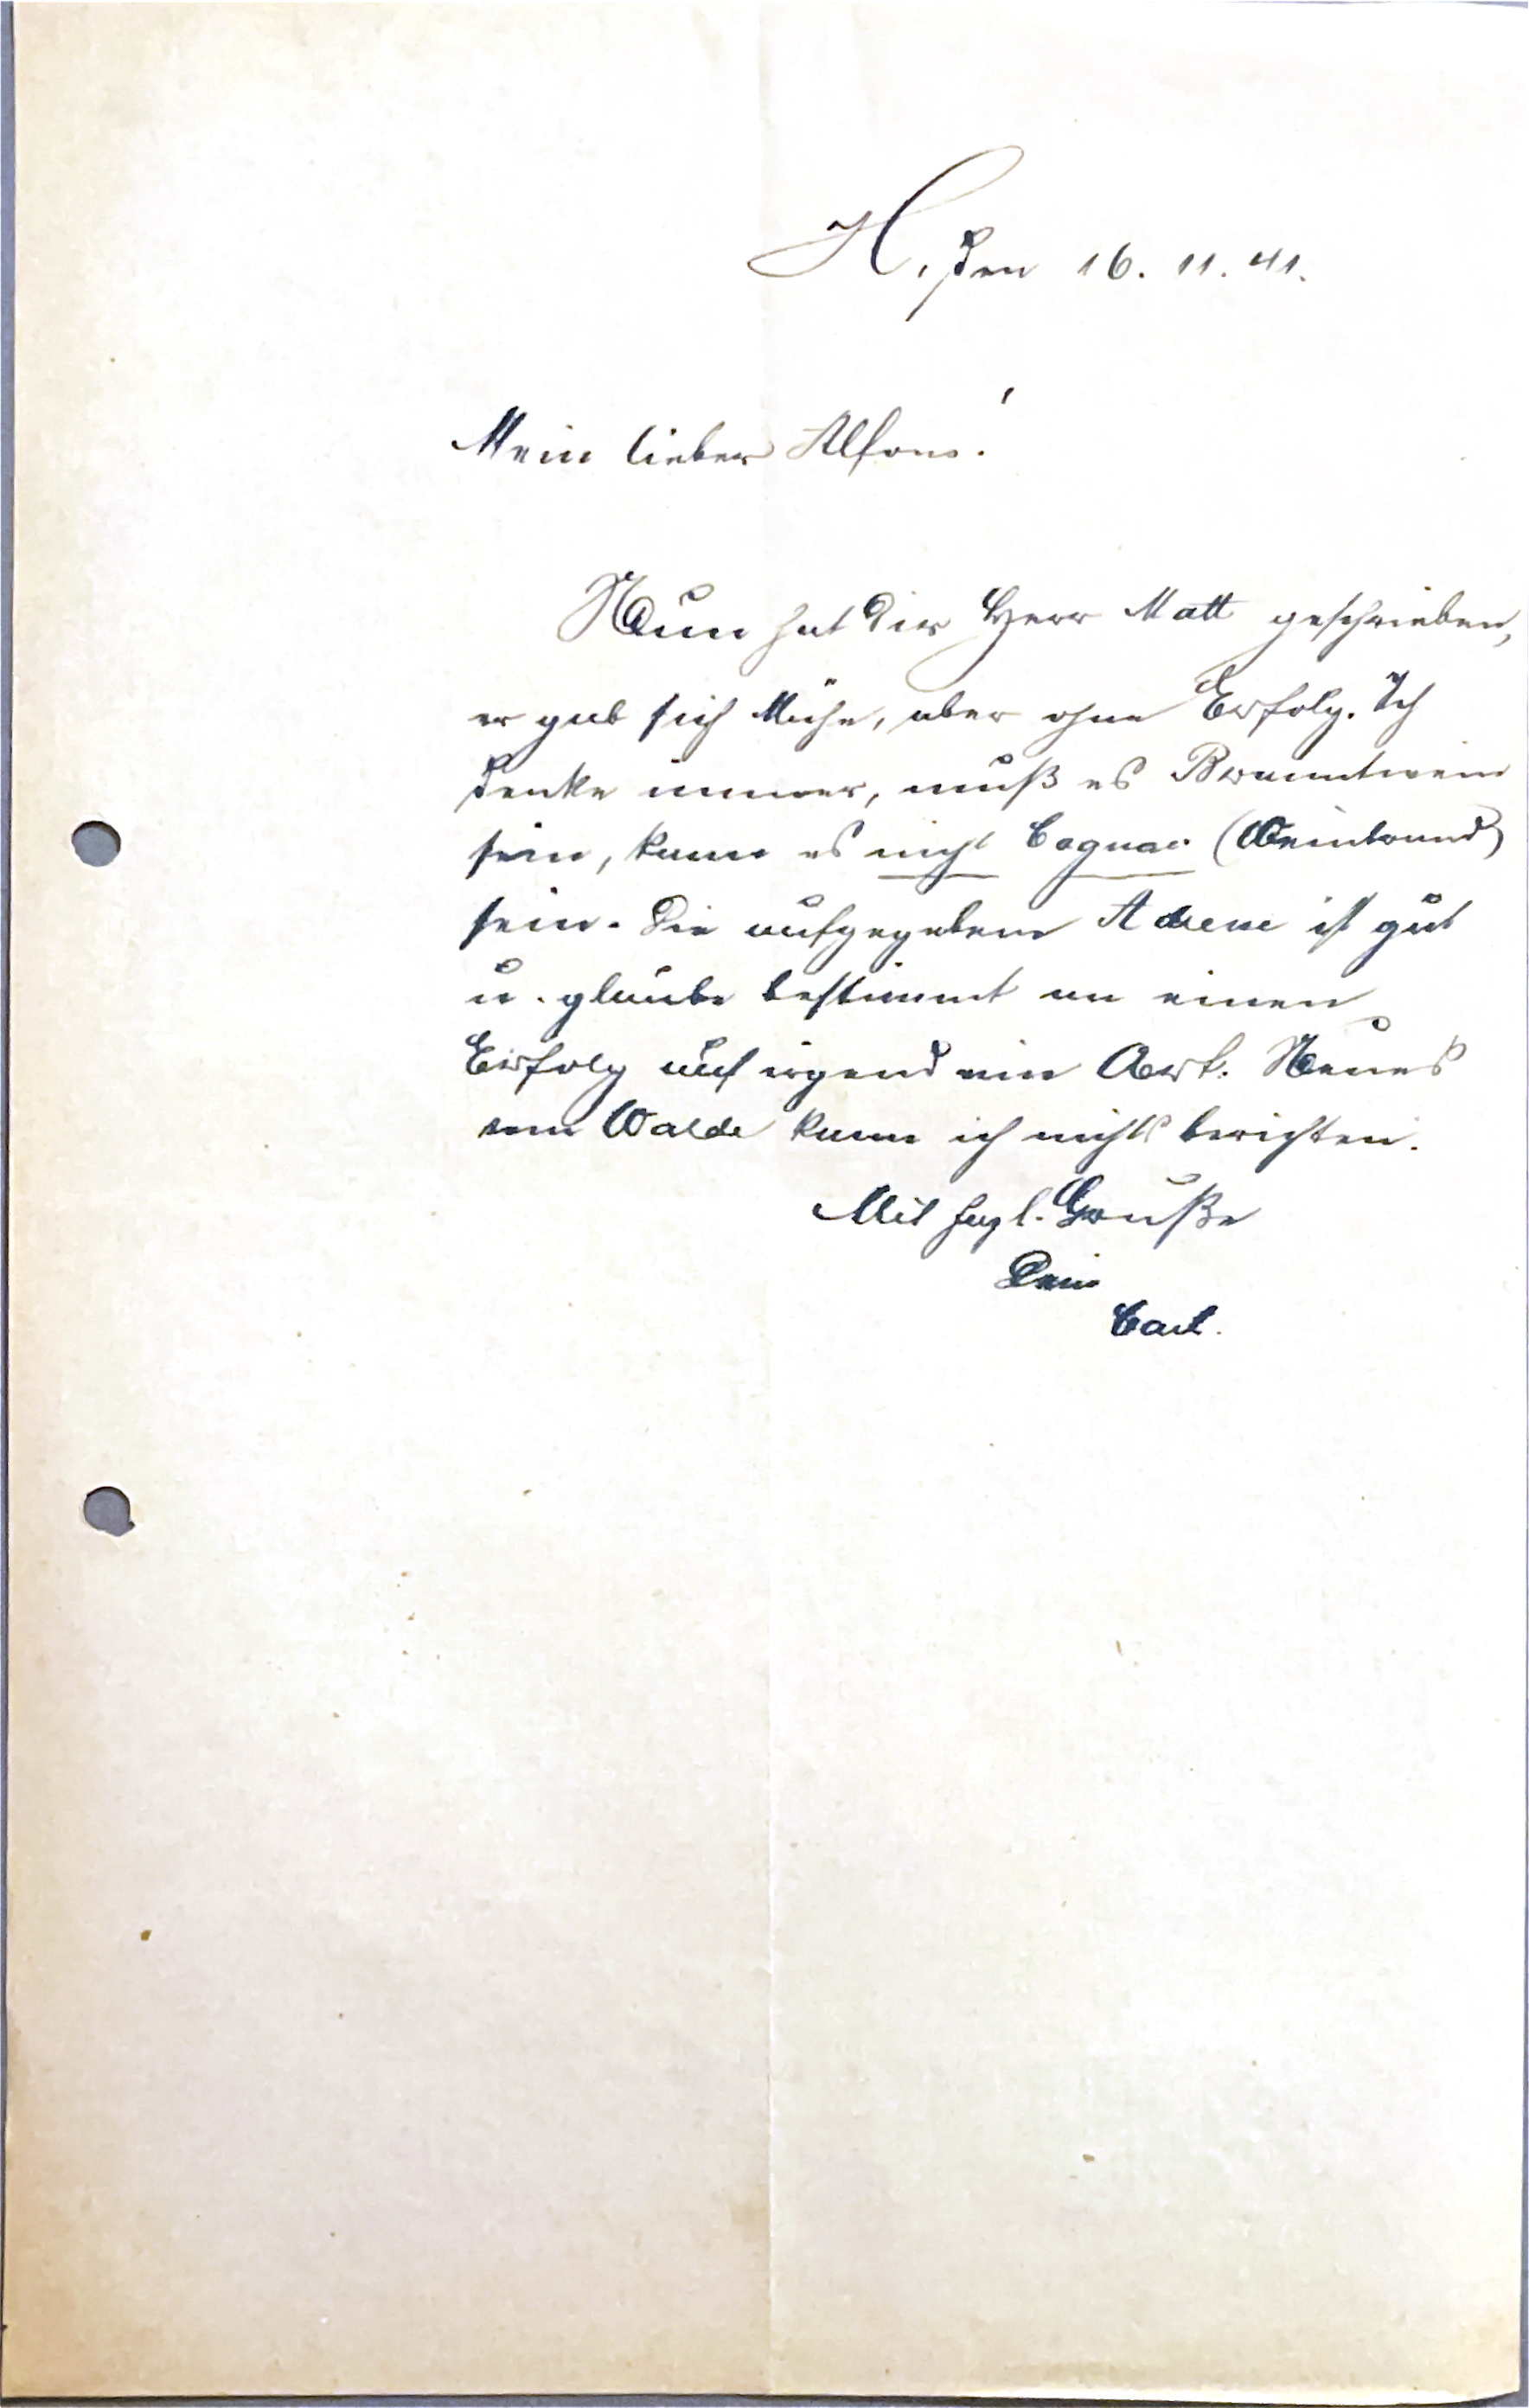 H, den 16. 11. 41.
Mein lieber Alfons!
Nun hat Dir Herr Matt geschrieben,
er gab sich Mühe, aber ohne Erfolg. Ich
denke immer, muß es Branntwein
sein, kann es nicht Cognac (Weinbrand)
sein. Die aufgegebene Adresse ist gut
u. glaube bestimmt an einen
Erfolg auf irgend eine Art. Neues
vom Walde kann ich nichts berichten.
Mit hzgl. Grüße
Dein
Carl.